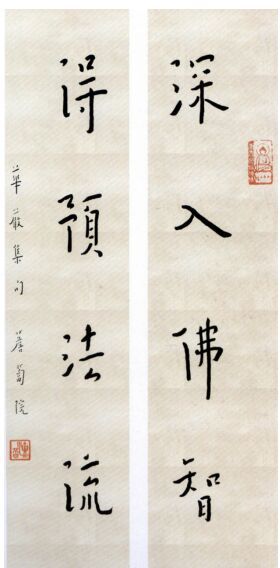 深入佛智
得預法流
華嚴集句 薝蔔院